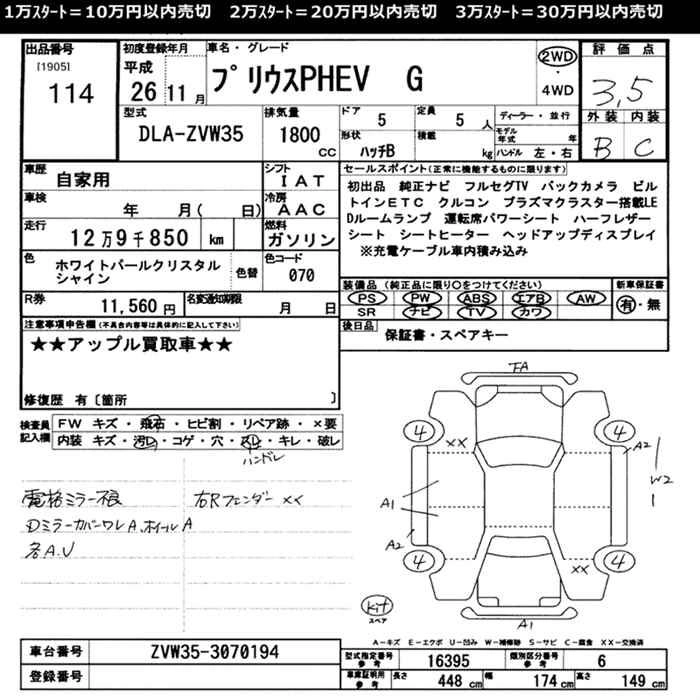 1万ｽﾀｰﾄ＝10万円以内売切　2万ｽﾀｰﾄ＝20万円以内売切　3万ｽﾀｰﾄ＝30万円以内売切
出品番号
[1905]
114
初度登録年月
平成
26 11月
車名・グレード
プリウスPHEV G
2WD・
4WD
評価点
3,5
外装 内装
B C
型式
DLA-ZVW35
排気量
1800
CC
ドア
5
定員
5 人
ディーラー・並行
形状
ハッチB
積載
kg
モデル年式 年
ハンドル 左・右
車歴
自家用
シフト
IAT
車検
年 月( 日)
冷房
AAC
走行
12万9千850 km
燃料
ガソリン
色
ホワイトパールクリスタル
シャイン
色替
色コード
070
R券
11,560 円
名変通知期限
月 日
セールスポイント(正常に機能するものに限ります)
初出品 純正ナビ フルセグTV バックカメラ ビル
トインETC クルコン プラズマクラスター搭載LE
Dルームランプ 運転席パワーシート ハーフレザー
シート シートヒーター ヘッドアップディスプレイ
※充電ケーブル車内積み込み
装備品(純正品に限り○をつけてください)
PS PW ABS エアB AW
SR ナビ TV カワ
新車保証書
有・無
後日品
保証書・スペアキー
注意事項申告欄(不具合内容等は具体的に記入して下さい)
★★アップル買取車★★
修復歴 有〔箇所 〕
検査員
記入欄
FW キズ・飛石・ヒビ割・リペア跡・×要
内装 キズ・汚レ・コゲ・穴・スレ・キレ・破レ
ハンドル
電格ミラー不良
右Rフェンダー××
Dミラーカバーワレ A、ホイールA
各A.U
FA
4
××
4
A2
W2
A1
A2
4
××
4
A1
kit
スペア
A－キズ E－エクボ U－凹み W－補修跡 S－サビ C－腐食 XX－交換済
車台番号
ZVW35-3070194
登録番号
型式指定番号
参考
16395
類別区分番号
参考
6
車庫証明用
参考
長さ 448 cm
幅 174 cm
高さ 149 cm